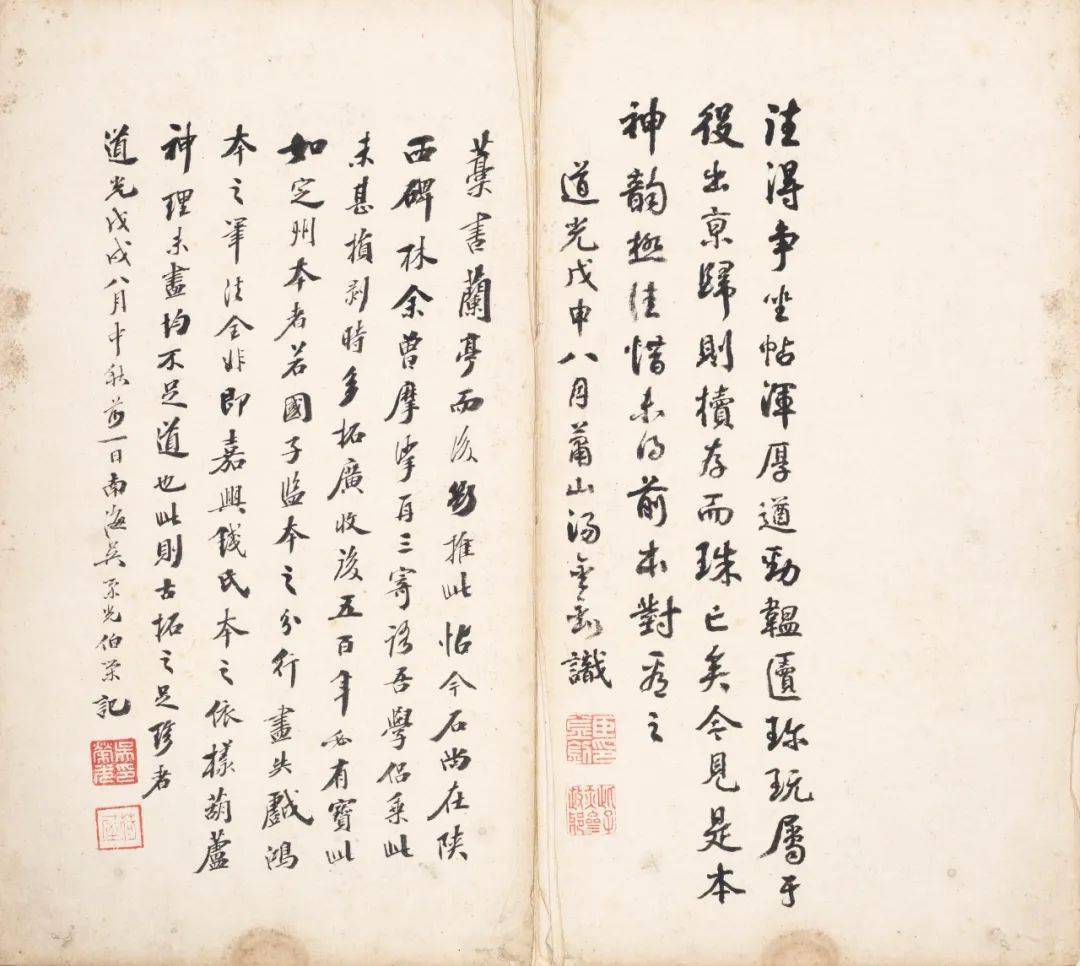 往得争坐帖渾厚遒勁韞匵珎玩屬于
役出京歸則櫝存而珠亡矣今見是本
神韵極佳惜未得前本對看之
道光戊申八月蕭山湯金釗識
藁書蘭亭而後必推此帖今石尚在陝
西碑林余曾摩挲再三寄語吾學侣乘此
未甚損剥時多拓廣收後五百年必有寶此
如定州本者若國子監本之分行盡失戲鴻
本之筆法全非即嘉興錢氏本之依樣葫蘆
神理未盡均不足道也此則古拓之足珍者
道光戊戌八月中秋前一日南海吳榮光伯榮記